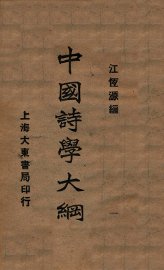 江恆源編
中國詩學大綱
上海大東書局印行
一